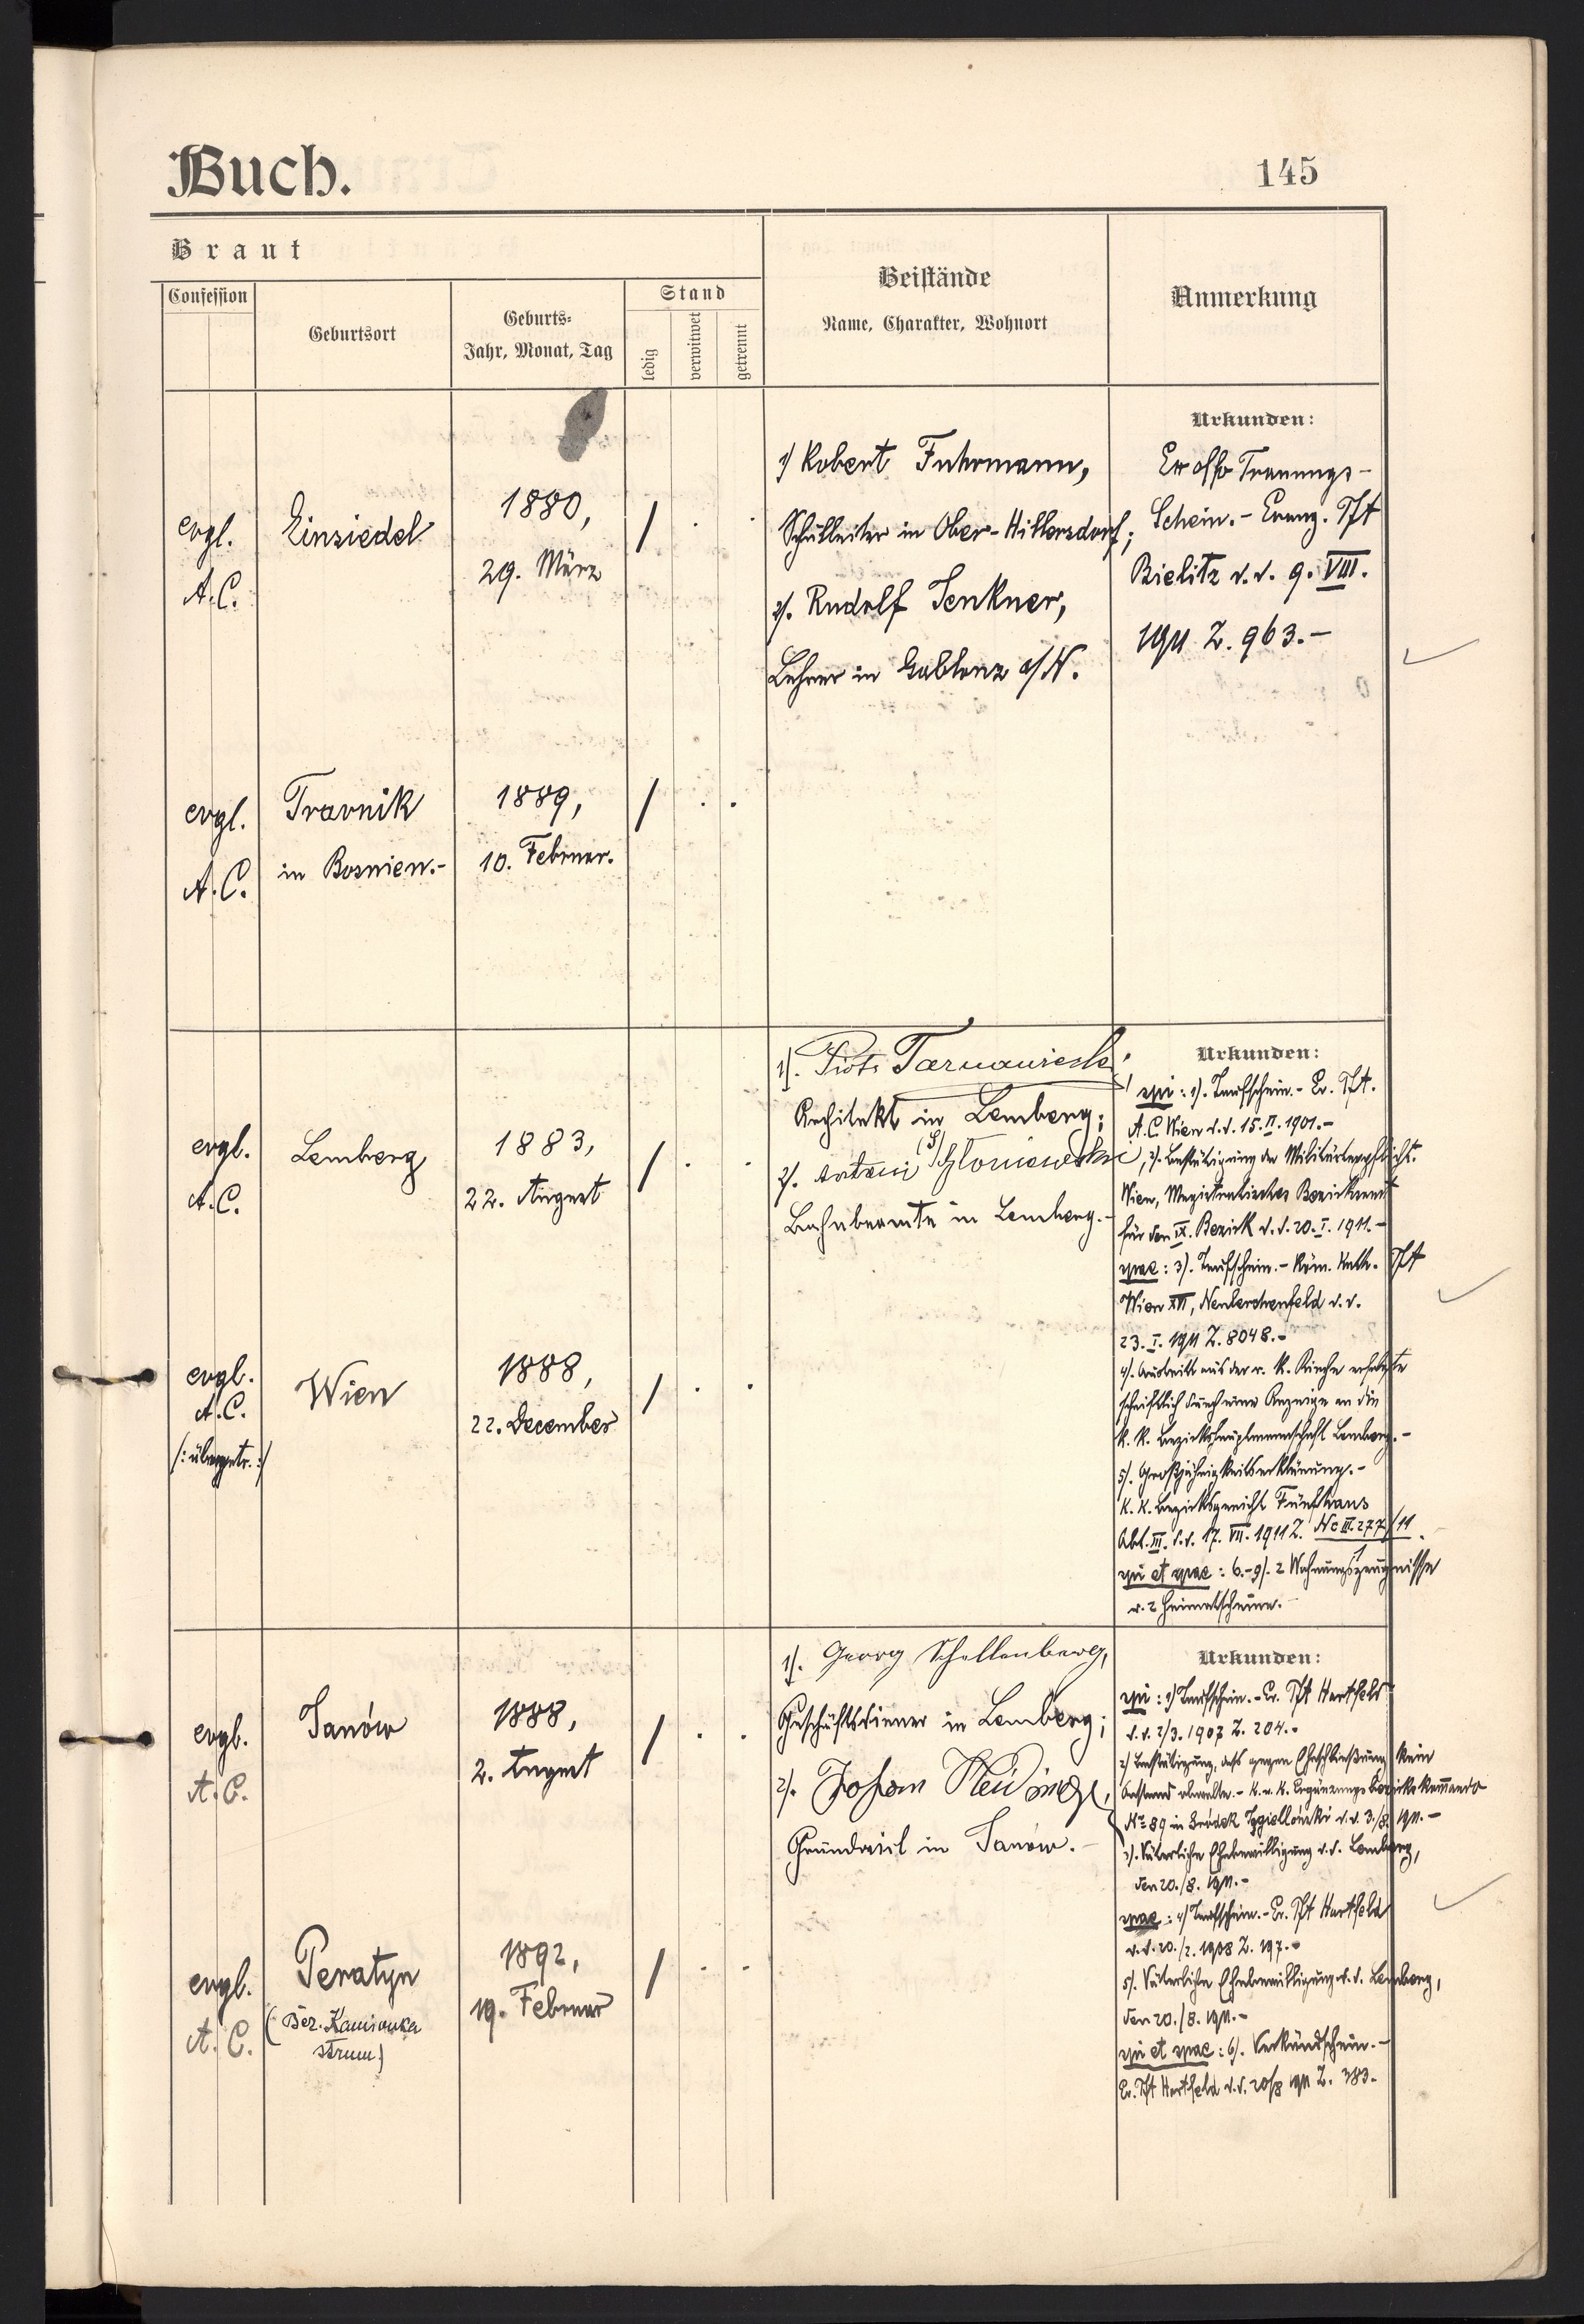 Buch.
145
Braut
Confession
Geburtsort
Geburts-
Jahr, Monat, Tag
Stand
ledig
verwitwet
getrennt
Beistände
Name, Charakter, Wohnort
Anmerkung
evgl.
A.C.
Einsiedel
1880,
29. März
/
1) Robert Fuhrmann,
Schulleiter in Ober-Hillersdorf;
2). Rudolf Jenkner,
Lehrer in Gablonz a/N.
Urkunden:
Ex offo Trauungs-
Schein. - Evang. PfA
Bielitz d.d. 9. VIII.
1911 Z. 963.-
evgl.
A.C.
Travnik
in Bosnien.-
1889,
10. Februar.
/
evgl.
A.C.
Lemberg
1883,
22. August
/
1). Piotr Tarnawiecki,
Architekt in Lemberg;
2). Antoni Słoniewski,
Bahnbeamte in Lemberg.-
Urkunden:
spi: 1). Taufschein.- Ev. PfA.
A.C. Wien d.d. 15. II. 1901.-
2). Bestätigung der Militärtaxpflicht.
Wien, Magistratisches Bezirksamt
für den IX. Bezirk d.d. 20. I. 1911.-
spae: 3). Taufschein.- Röm. kath. PfA
Wien XVI, Neulerchenfeld d.d.
23. I. 1911 Z. 8048.-
4). Austritt aus der r. k. Kirche erfolgte
schriftlich durch eine Anzeige an die
k. k. Bezirkshauptmannschaft Lemberg.-
5). Großjährigkeitserklärung.-
k. k. Bezirksgericht Fünfhaus
Abt. III. d.d. 17. VII. 1911 Z. Nc III. 277/11
spi et spae: 6.-9). 2 Wohnungszeugnisse
u. 2 Heimatscheine.-
evgl.
A.C.
/:übergetr.:/
Wien
1888,
22. December
/
evgl.
A.C.
Janów
1888,
2. August
/
1). Georg Schellenberg,
Geschäftsdiener in Lemberg;
2). Johan
Grundwirt in Janów.-
Urkunden:
spi: 1) Taufschein.- Ev. PfA Hartfeld
d.d. 2/3. 1907 Z. 204.-
2) Bestätigung, daß gegen Eheschließung kein
Anstand obwalte.- K. u. K. Ergänzungsbezirkskommando
No 89 in Gródek Jagielloński d.d. 3./8. 1911.-
3). Väterliche Ehebewilligung d.d. Lemberg,
den 20./8. 1911.-
spae: 4) Taufschein.- Ev. PfA Hartfeld
d.d. 20./2. 1908 Z. 197.-
5). Väterliche Ehebewilligung d.d. Lemberg,
den 20./8. 1911.-
spi et spae: 6). Verkündschein.-
Ev. PfA Hartfeld d.d. 20/8 1911 Z. 383.-
evgl.
A.C.
Peratyn
(Bez. Kamionka
strum)
1892,
19. Februar
/